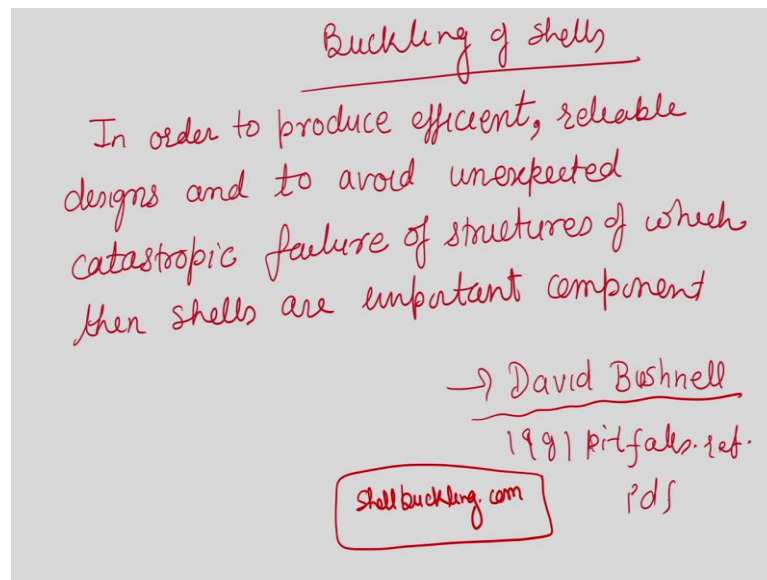 Buckling of shells
In order to produce efficient, reliable
designs and to avoid unexpected
catastropic failure of structures of which
then shells are important component
→ David Bushnell
1981 pitfalls. ref.
pdf
shellbuckling.com